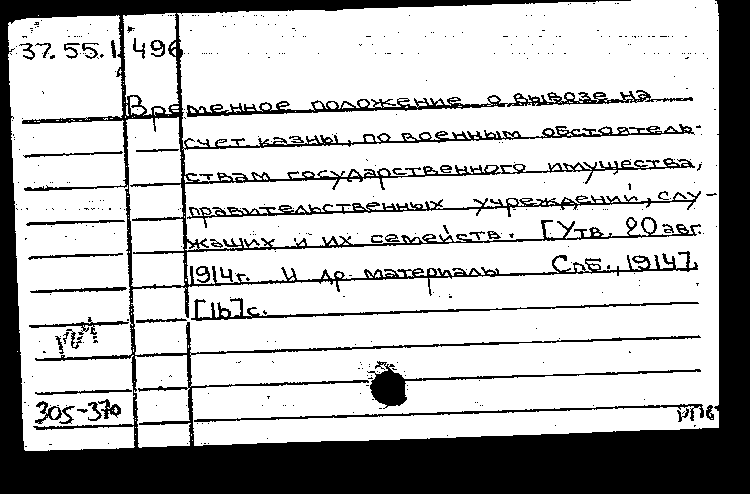 37.55.1.496
Временное положение о вывозе на
счет казны, по военным обстоятель-
ствам государственного имущества,
правительственных учреждений, слу-
жащих и их семейств. [Утв. 20 авг.
1914г. и др. материалы Спб., 1914].
[16]с.
305-370